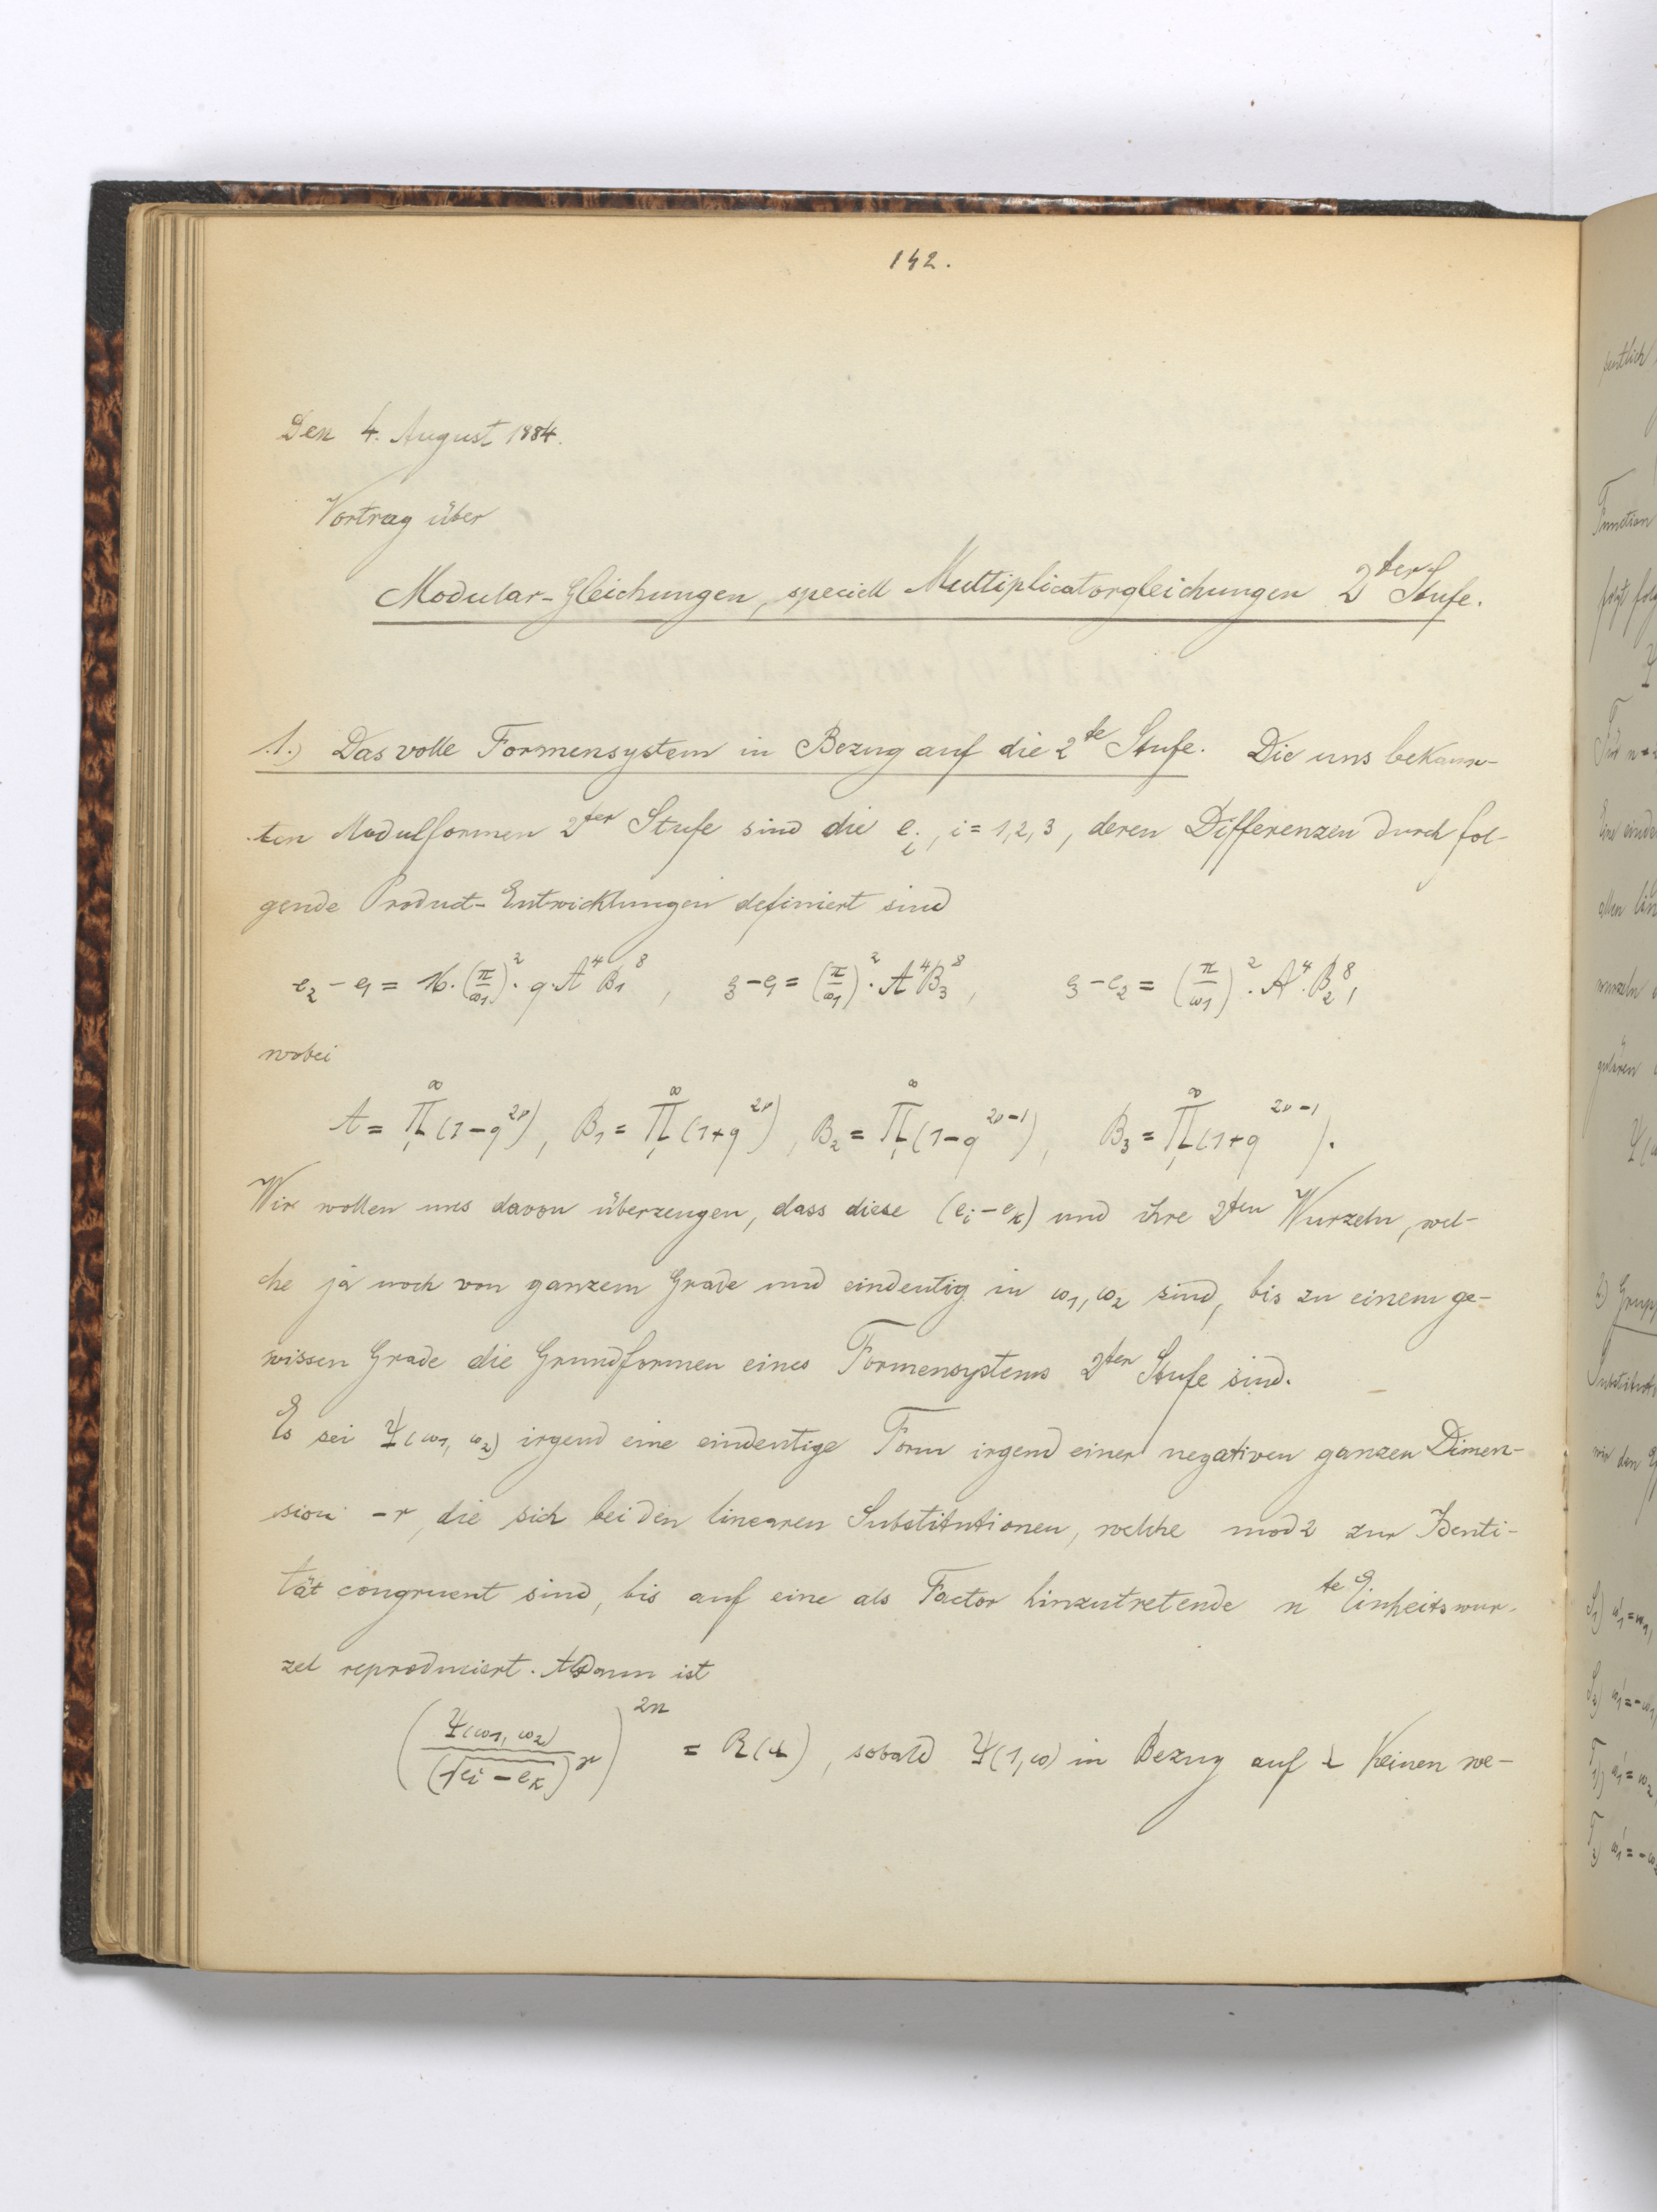 142.
Den 4. August 1884.
Vortrag über
Modular-Gleichungen, speciell Multiplicatorgleichungen 2ter Stufe.
1.) Das volle Formensystem in Bezug auf die 2te Stufe. Die uns bekann-
ten Modulformen 2ter Stufe sind die e_i, i = 1, 2, 3, deren Differenzen durch fol-
gende Product-Entwicklungen definiert sind
e_2 - e_1 = 16·(π/ω_1)^2·q·A^4 B_1^8, e_3 - e_1 = (π/ω_1)^2·A^4 B_3^8, e_3 - e_2 = (π/ω_1)^2·A^4·B_2^8,
wobei
A = ∏_1^∞ (1-q^{2ν}), B_1 = ∏_1^∞ (1+q^{2ν}), B_2 = ∏_1^∞ (1-q^{2ν-1}), B_3 = ∏_1^∞ (1+q^{2ν-1}).
Wir wollen uns davon überzeugen, dass diese (e_i - e_k) und ihre 2ten Wurzeln, wel-
che ja noch von ganzem Grade und eindeutig in ω_1, ω_2 sind, bis zu einem ge-
wissen Grade die Grundformen eines Formensystems 2ter Stufe sind.
Es sei Ψ(ω_1, ω_2) irgend eine eindeutige Form irgend einer negativen ganzen Dimen-
sion -r, die sich bei den linearen Substitutionen, welche mod 2 zur Identi-
tät congruent sind, bis auf eine als Factor hinzutretende nte Einheitswur-
zel reproduciert. Alsdann ist
(Ψ(ω_1, ω_2)/(√(e_i - e_k))^r)^{2n} = R(λ), sobald Ψ(1, ω) in Bezug auf λ keinen we-